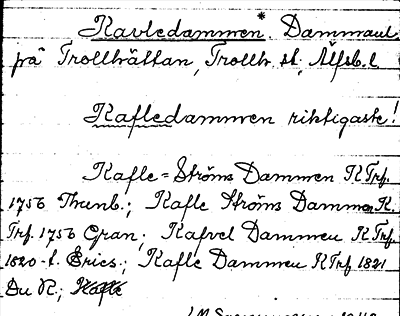 Kavledammen*. Dammaul
på Trollhättan, Trollh. st., Älfsb. l
Kafledammen riktigaste!
Kafle-Ströms Dammen KTrf.
1756 Thunb.; Kafle Ströms Dammen K.
Trf. 1756 Gran; Kafvel Dammen KTrf.
1820-t. Erics.; Kafle Dammen KTrf 1821
Du R.; Kafle